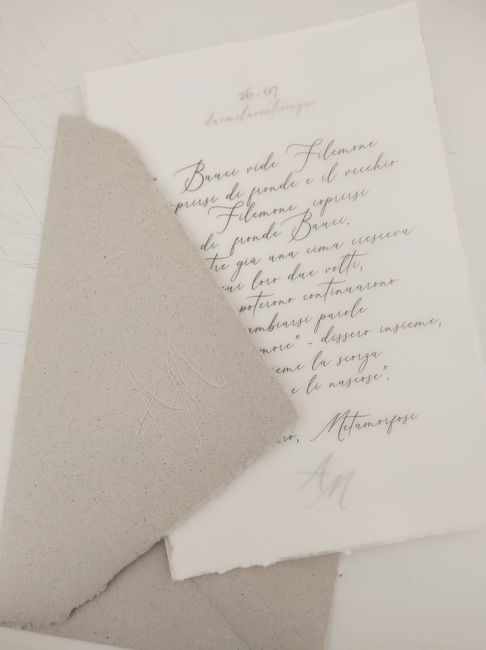 26 . 07
duemilaventicinque
" Bauci vide Filemone
coprirsi di fronde e il vecchio
Filemone coprirsi
di fronde Bauci.
già una cima cresceva
loro due volti,
poterono continuarono
parole
dissero insieme,
la scorza
e li nascose".
Metamorfosi
AN
AN